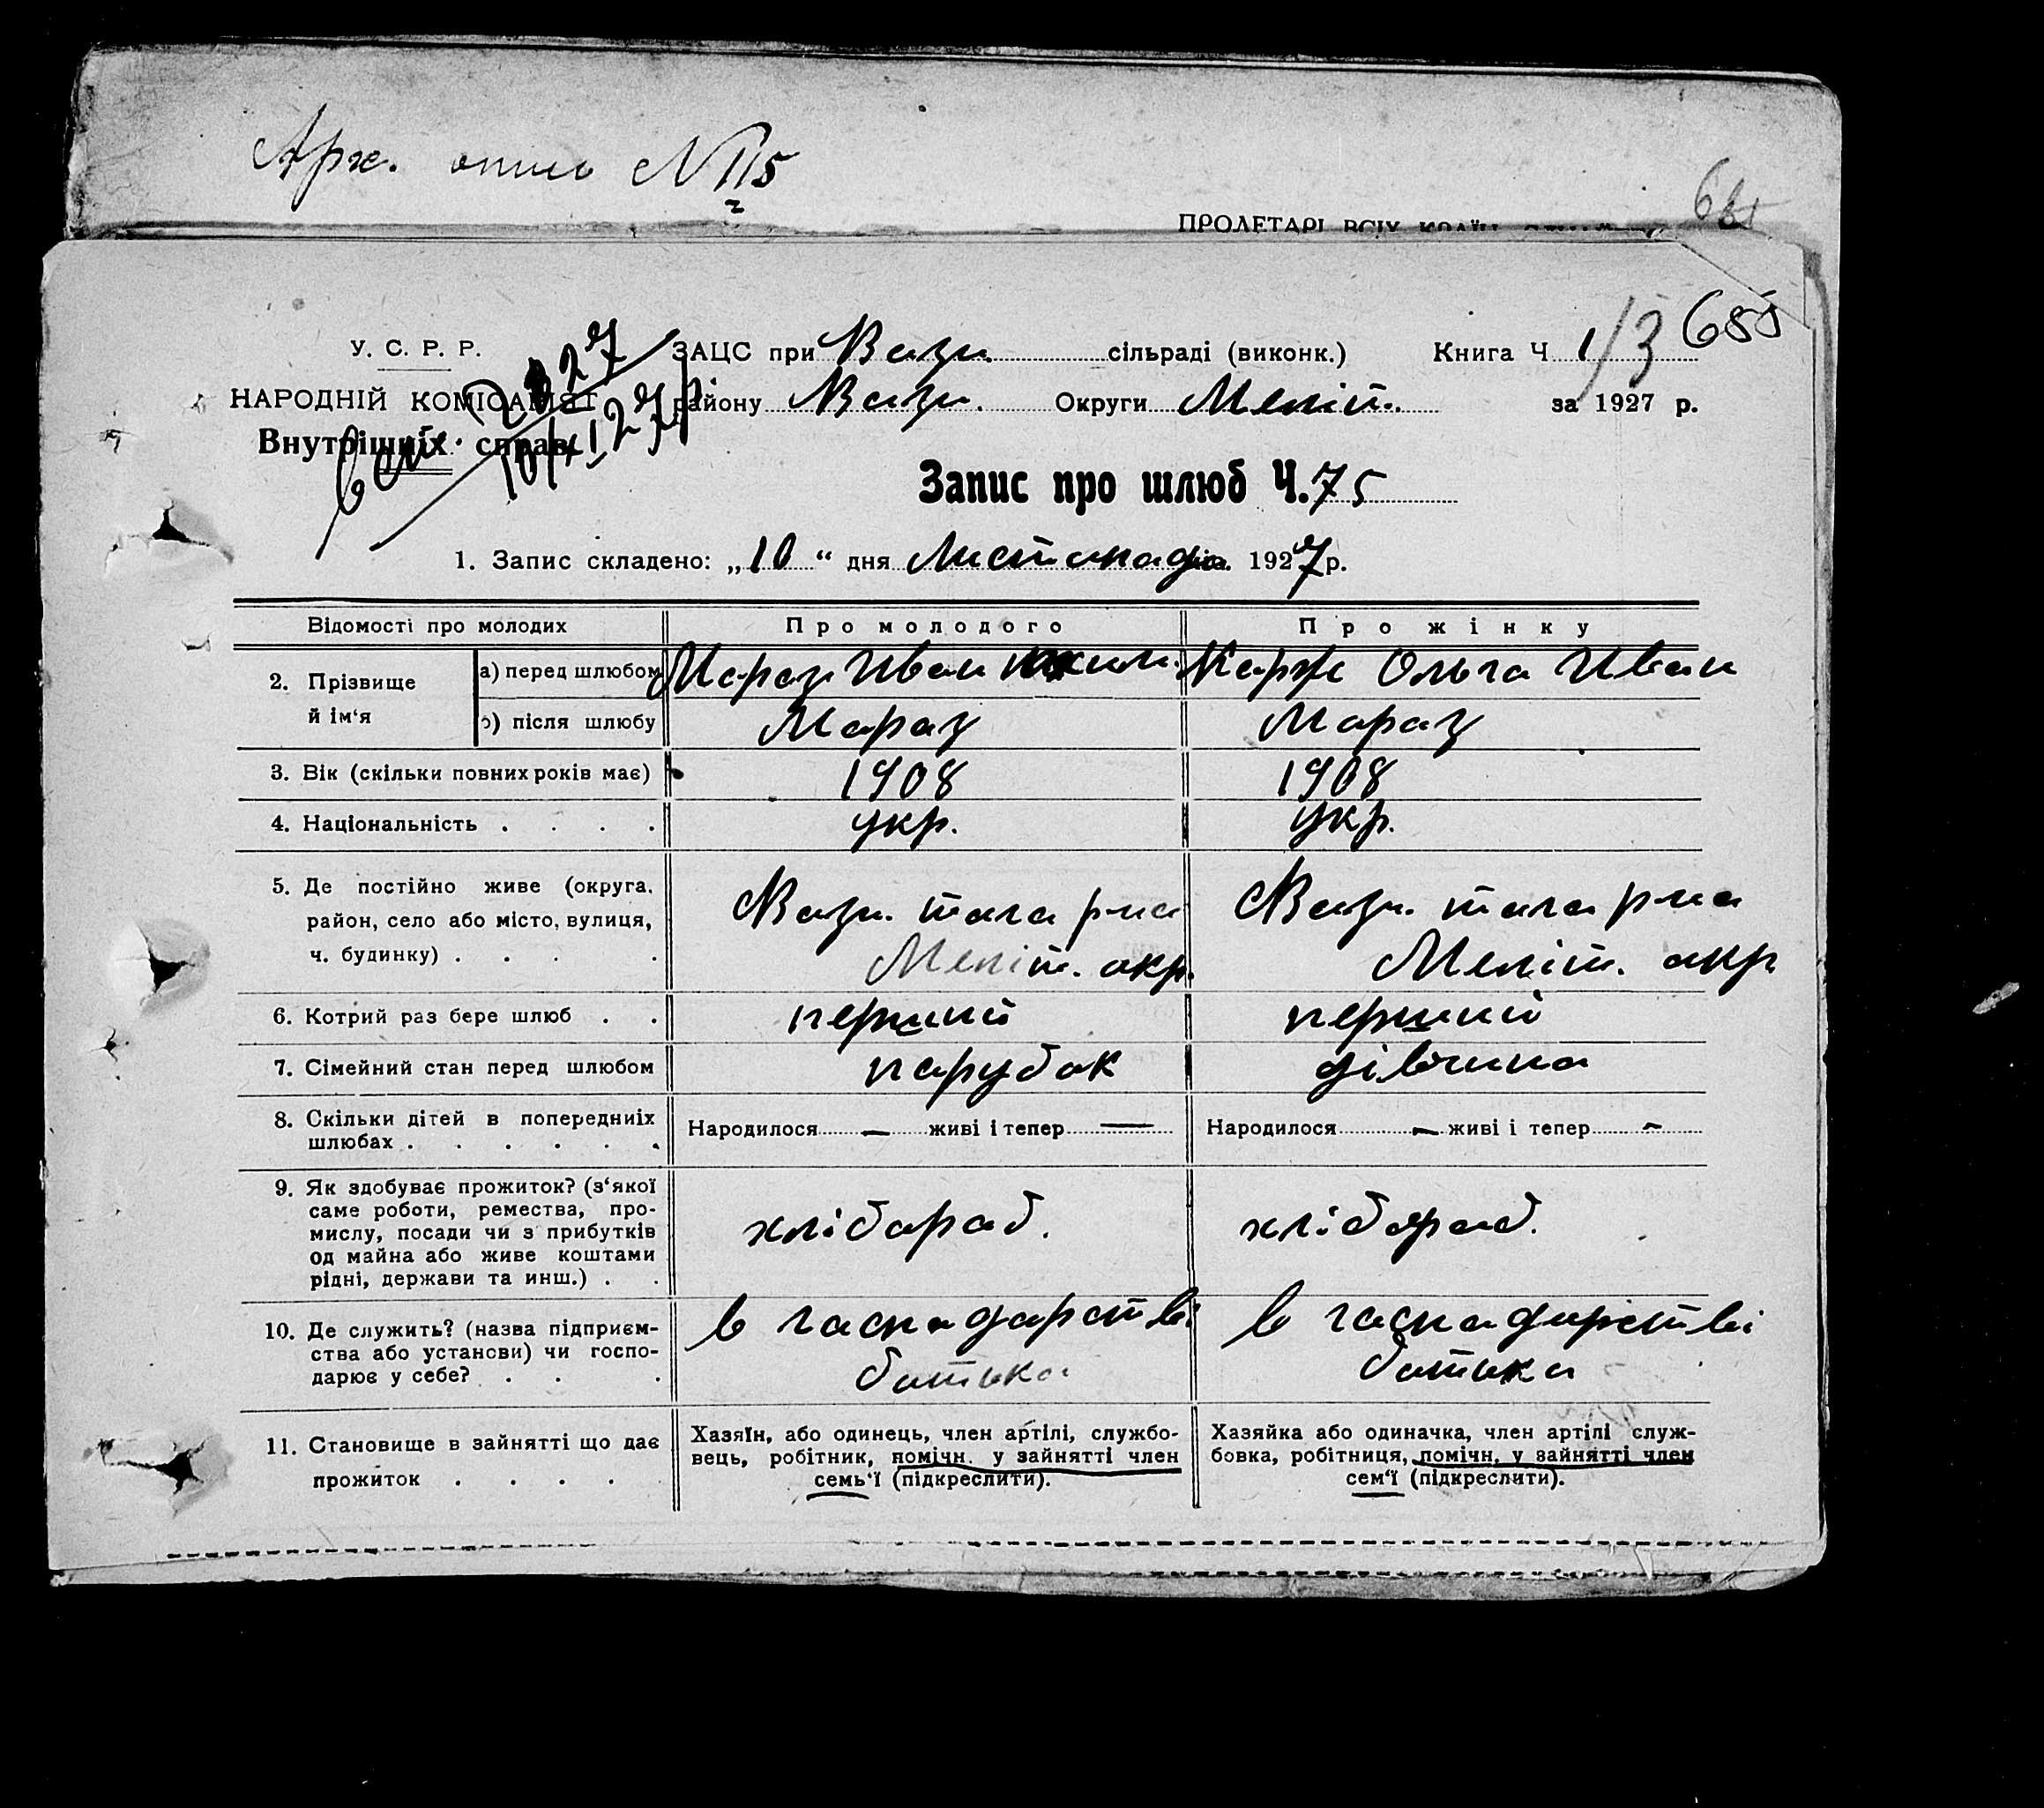 Арх. опись N 115
2
685
ПРОЛЕТАРІ ВСІХ КРАЇН
У. С. Р. Р.
НАРОДНІЙ КОМІСАРІЯТ
Внутрішніх справ
ЗАЦС при Вази. сільраді (виконк.) Книга Ч 1/3 685
району Вази. Округи Меліт. за 1927 р.
10/XI 27 р
Запис про шлюб Ч. 75
1. Запис складено: „10“ дня Листопада 1927 р.
Відомості про молодих Про молодого Про жінку
2. Прізвище й ім‘я
а) перед шлюбом Мороз Иван Корж Ольга Иван
б) після шлюбу Мороз Мороз
3. Вік (скільки повних років має) 1908 1908
4. Національність . . . . укр. укр.
5. Де постійно живе (округа,
район, село або місто, вулиця,
ч. будинку) . . . .
Вази. того р-на
Меліт. окр.
Вази. того р-на
Меліт. окр
6. Котрий раз бере шлюб . . перший перший
7. Сімейний стан перед шлюбом парубок дівчина
8. Скільки дітей в попередниіх
шлюбах . . . . . .
Народилося — живі і тепер —
Народилося — живі і тепер -
9. Як здобуває прожиток? (з‘якої
саме роботи, ремества, про-
мислу, посади чи з прибутків
од майна або живе коштами
рідні, держави та инш.) . .
хлібороб.
хлібороб.
10. Де служить? (назва підприєм-
ства або установи) чи госпо-
дарює у себе? . . .
в господарстві
батька
в господарстві
батька
11. Становище в зайнятті що дає
прожиток . . . .
Хазяїн, або одинець, член артілі, службо-
вець, робітник, помічн. у зайнятті член
семь‘ї (підкреслити).
Хазяйка або одиначка, член артілі служ-
бовка, робітниця, помічн. у зайнятті член
сем‘ї (підкреслити).